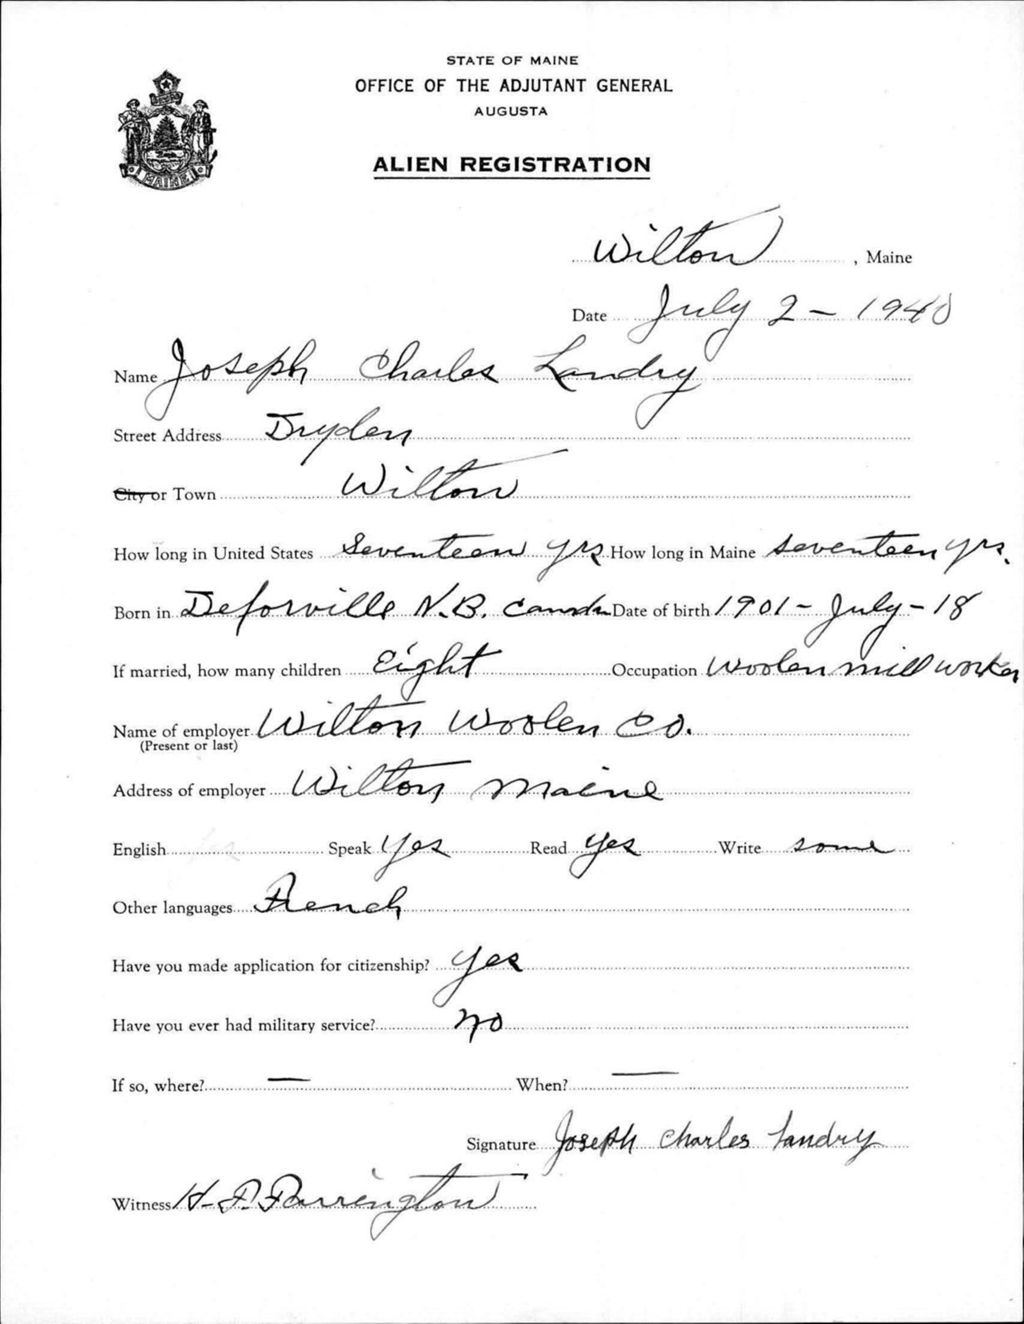 STATE OF MAINE
OFFICE OF THE ADJUTANT GENERAL
AUGUSTA
ALIEN REGISTRATION
MAINE
Wilton, Maine
Date July 2 - 1940
Name Joseph Charles Landry
Street Address Dryden
City or Town Wilton
How long in United States Seventeen yrs How long in Maine seventeen yrs.
Born in Deforville N.B. Canada Date of birth 1901 - July - 18
If married, how many children Eight Occupation Woolen mill worker
Name of employer Wilton Woolen Co.
(Present or last)
Address of employer Wilton, Maine
English Speak Yes Read yes Write some
Other languages French
Have you made application for citizenship? yes
Have you ever had military service? no
If so, where? — When? —
Signature Joseph Charles Landry
Witness H. P. Farrington